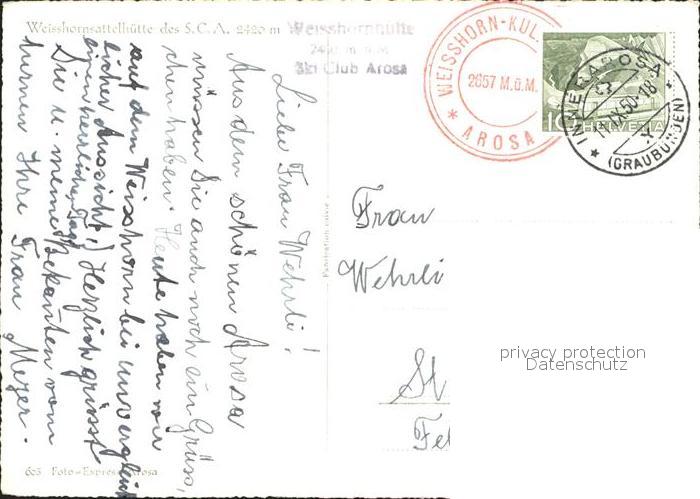 Weisshornsattelhütte des S.C.A. 2420 m
Weisshornhütte
2420 m ü.M.
Ski Club Arosa
WEISSHORN-KUL
2657 M.ü.M.
* AROSA
10 HELVETIA
INNERAROSA
IX.50.-18
* (GRAUBÜNDEN)
Liebe Frau Wehrli!
Aus dem schönen Arosa
müssen Sie auch noch ein Grüss,
chen haben. Heute haben wir
auf dem Weisshorn bei unvergleich
licher Aussicht
einen herrlichen Tag!) Herzlich grüsst
Sie u. meine Bekannten vom
turnen Ihre Frau Meyer.
Frau
Wehrli
St
Fe
privacy protection
Datenschutz
603 Foto-Express Arosa